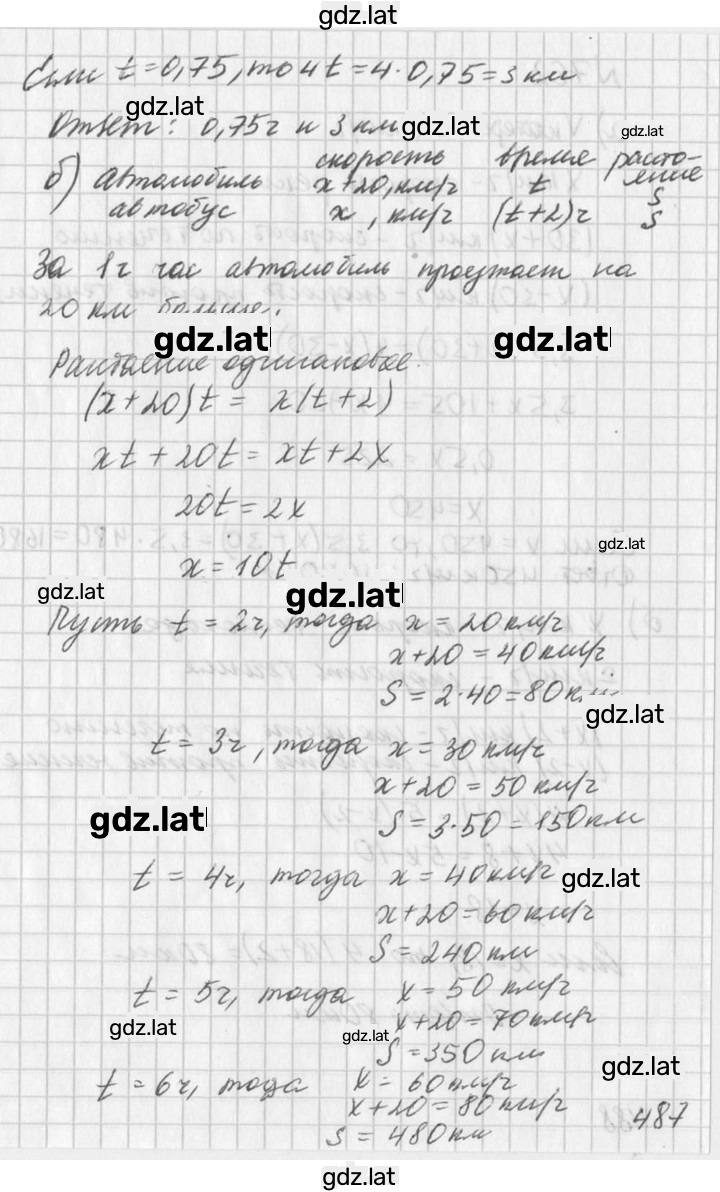 gdz.lat
Если t=0,75, то 4t=4·0,75=3 км
gdz.lat
Ответ: 0,75ч и 3 км
gdz.lat
gdz.lat
скорость время расто-
б) Автомобиль x+20, км/ч t яние S
автобус x, км/ч (t+2)ч S
За 1ч час автомобиль проезжает на
20 км больше.
gdz.lat gdz.lat
Растояние одинаковое.
(x+20)t = x(t+2)
xt+20t = xt+2x
20t=2x
gdz.lat
x=10t
gdz.lat gdz.lat
Пусть t = 2ч, тогда x = 20 км/ч
x+20 = 40 км/ч
S = 2·40=80 км
gdz.lat
t = 3ч, тогда x = 30 км/ч
x+20 = 50 км/ч
gdz.lat
S = 3·50=150 км
t = 4ч, тогда x = 40 км/ч
gdz.lat
x+20=60 км/ч
S = 240 км
t = 5ч, тогда x = 50 км/ч
x+20=70 км/ч
gdz.lat gdz.lat
S = 350 км
gdz.lat
t = 6ч, тода x = 60 км/ч
x+20 = 80 км/ч
487
S = 480 км
gdz.lat